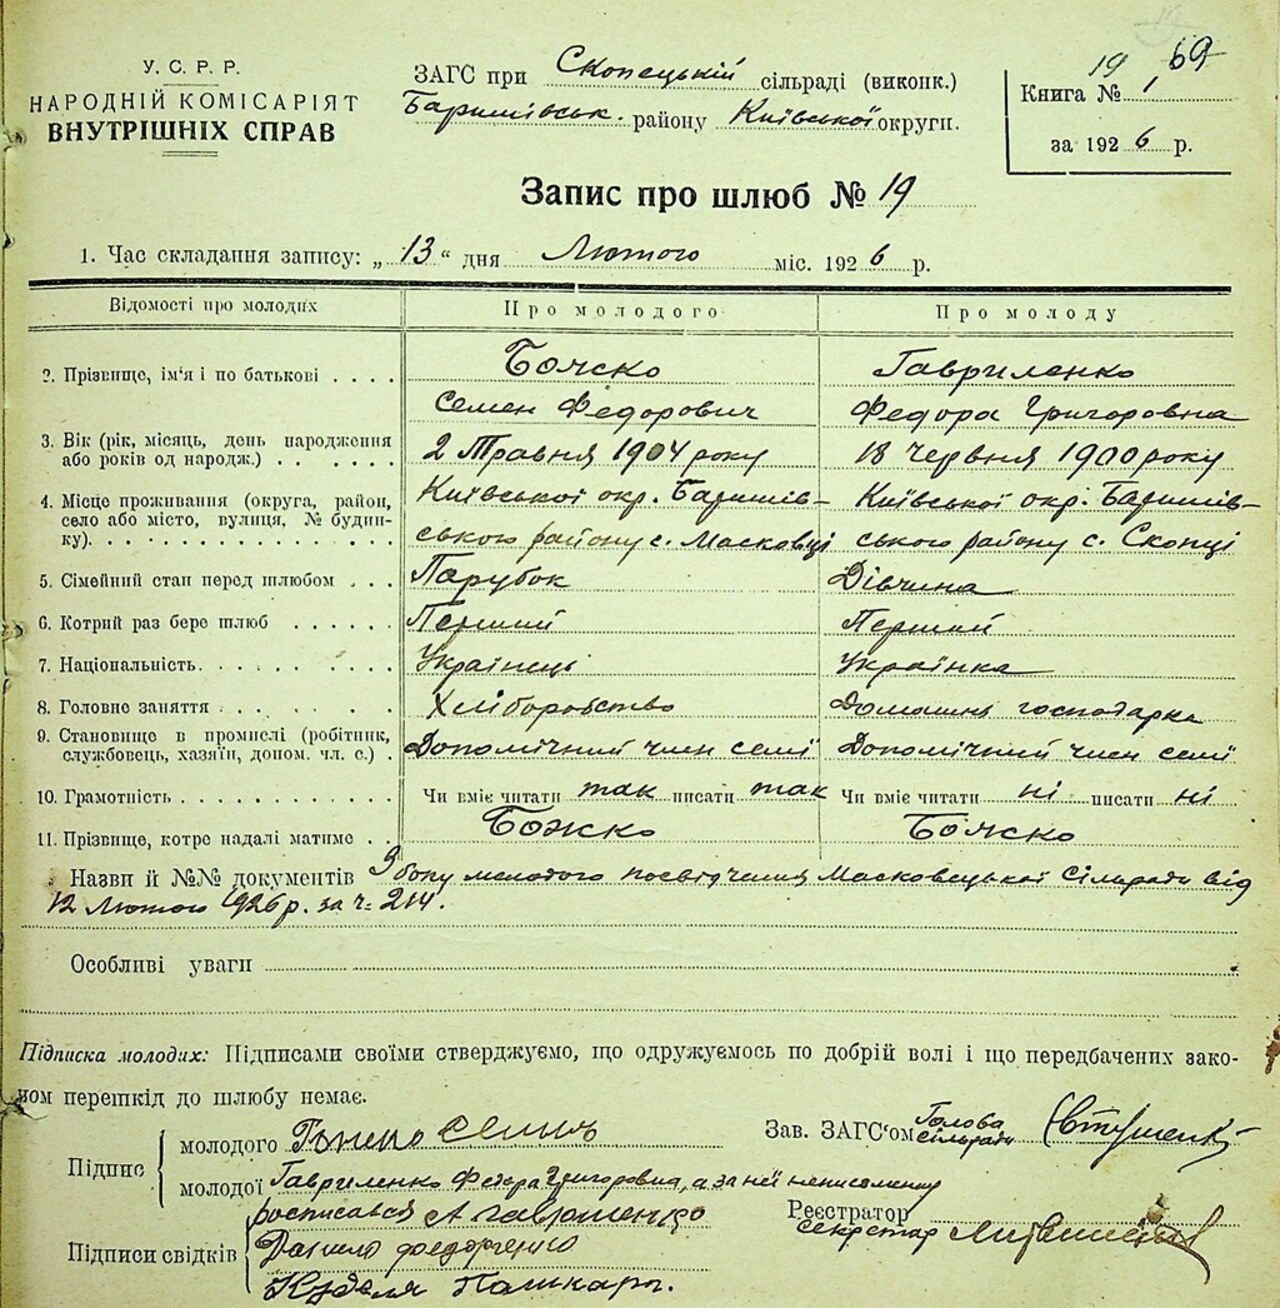 У. С. Р. Р.
НАРОДНІЙ КОМІСАРІЯТ
ВНУТРІШНІХ СПРАВ
ЗАГС при Скопецькій сільраді (виконк.)
Баришівськ. району Київської округи.
19 69
Книга № 1
за 1926 р.
Запис про шлюб № 19
1. Час складання запису: „13“ дня Лютого міс. 1926 р.
Відомості про молодих Про молодого Про молоду
2. Прізвище, ім'я і по батькові . . . . Божско Гавриленко
Семен Федорович Федора Григоровна
3. Вік (рік, місяць, день народження 2 Травня 1904 року 18 Червня 1900 року
або років од народж.) . . . . . . .
4. Місце проживання (округа, район, Київської окр. Баришів- Київської окр. Баришів-
село або місто, вулиця, № будин-
ку). . . . . . . . . . . . . . . . ського району с. Масковці ського району с. Скопці
5. Сімейний стан перед шлюбом . . . Парубок Дівчина
6. Котрий раз бере шлюб . . . . . . Перший Перший
7. Національність. . . . . . . . . Українець Українка
8. Головне заняття . . . . . . . Хліборобство Домашнь господарка
9. Становище в промислі (робітник,
службовець, хазяїн, допом. чл. с.) . Допомічний член семї Допомічний член семї
10. Грамотність . . . . . . . . . . . . Чи вміє читати так писати так Чи вміє читати ні писати ні
11. Прізвище, котре надалі матиме . . Божко Божско
Назви й №№ документів З боку молодого посвідчення Масковецької Сільради від
12 Лютого 1926 р. за ч. 214.
Особливі уваги
Підписка молодих: Підписами своїми стверджуємо, що одружуємось по добрій волі і що передбачених зако-
ном перешкід до шлюбу немає.
Підпис молодого Семен
молодої Гавриленко Федора Григоровна, а за неї неписьменну
росписався А Гавриленко
Підписи свідків Данило Федорченко
Куделя
Зав. ЗАГС'ом Голова
сільради Євтушенко
Реєстратор
секретар